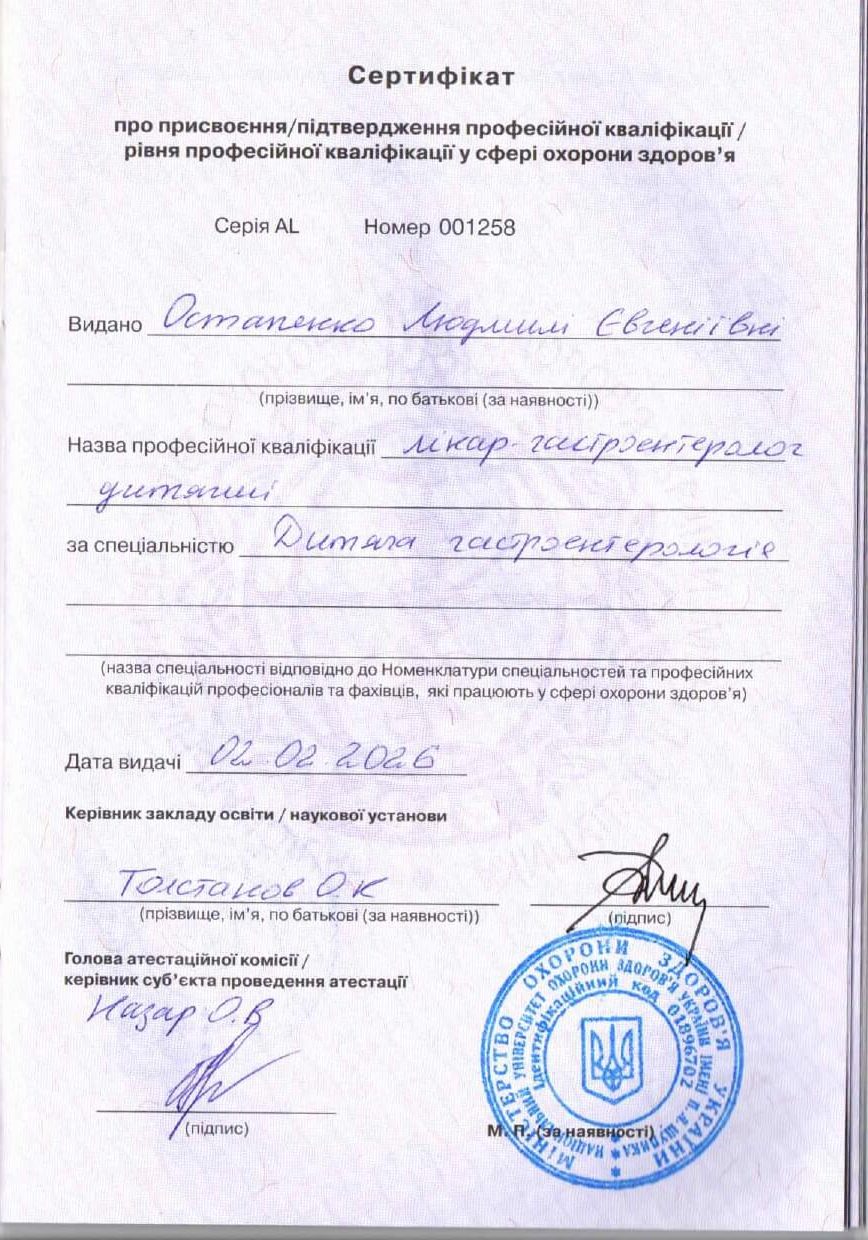 Сертифікат
про присвоєння/підтвердження професійної кваліфікації /
рівня професійної кваліфікації у сфері охорони здоров’я
Серія AL Номер 001258
Видано Остапенко Людмилі Євгеніївні
(прізвище, ім’я, по батькові (за наявності))
Назва професійної кваліфікації лікар-гастроентеролог
дитячий
за спеціальністю Дитяча гастроентерологія
(назва спеціальності відповідно до Номенклатури спеціальностей та професійних
кваліфікацій професіоналів та фахівців, які працюють у сфері охорони здоров’я)
Дата видачі 02.02.2026
Керівник закладу освіти / наукової установи
Толстанов О.К
(прізвище, ім’я, по батькові (за наявності))
(підпис)
Голова атестаційної комісії /
керівник суб’єкта проведення атестації
Назар О.В
(підпис)
М. П. (за наявності)
МІНІСТЕРСТВО ОХОРОНИ ЗДОРОВ'Я УКРАЇНИ
НАЦІОНАЛЬНИЙ УНІВЕРСИТЕТ ОХОРОНИ ЗДОРОВ'Я УКРАЇНИ ІМЕНІ П.Л.ШУПИКА
Ідентифікаційний код 01896702